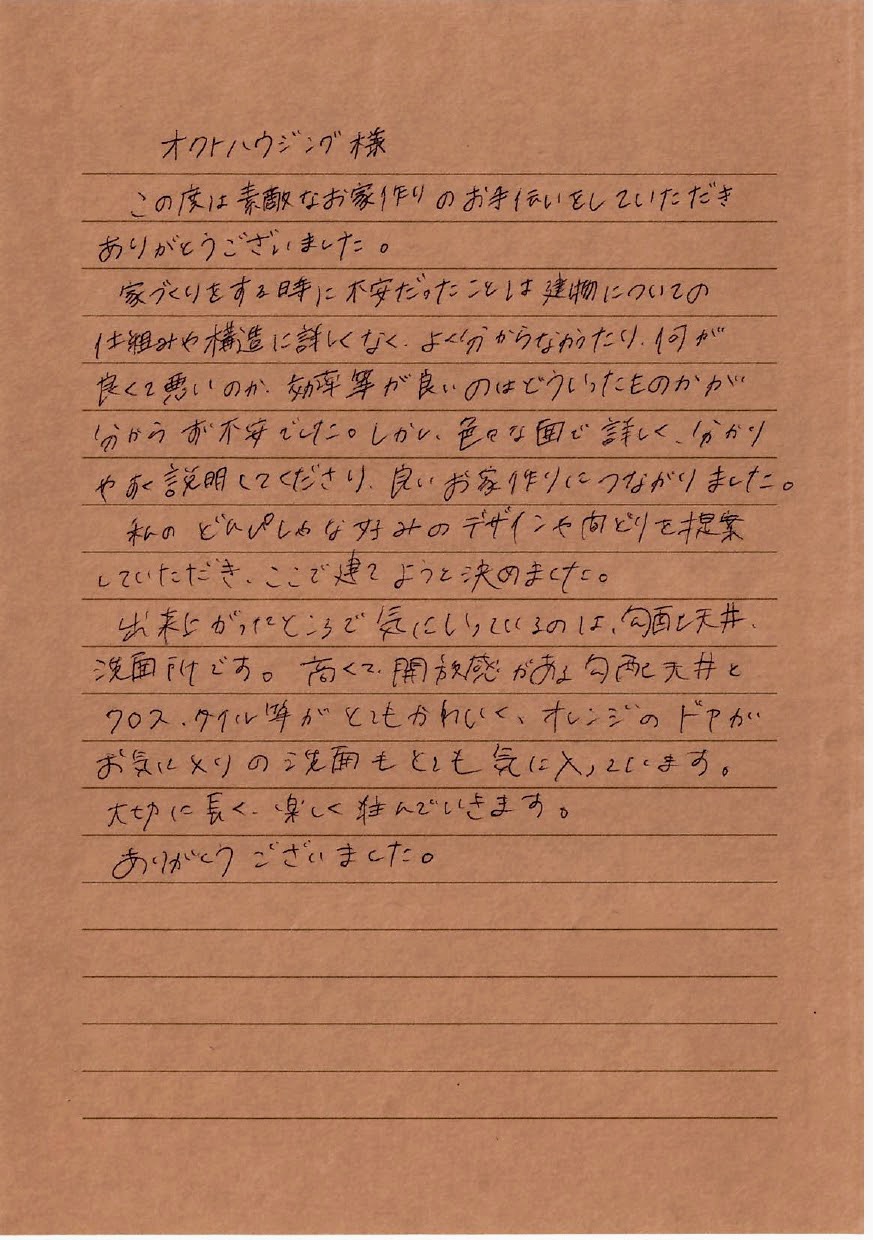 オクトハウジング様
この度は素敵なお家作りのお手伝いをしていただき
ありがとうございました。
家づくりをする時に不安だったことは建物についての
仕組みや構造に詳しくなく、よく分からなかったり、何が
良くて悪いのか、効率等が良いのはどういったものかが
分からず不安でした。しかし、色々な面で詳しく、分かり
やすく説明してくださり、良いお家作りにつながりました。
私のどんぴしゃな好みのデザインや間どりを提案
していただき、ここで建てようと決めました。
出来上がったところで気にいっているのは、勾配天井、
洗面所です。高くて、開放感がある勾配天井と
クロス、タイル等がとてもかわいく、オレンジのドアが
お気に入りの洗面もとても気に入っています。
大切に長く、楽しく住んでいきます。
ありがとうございました。